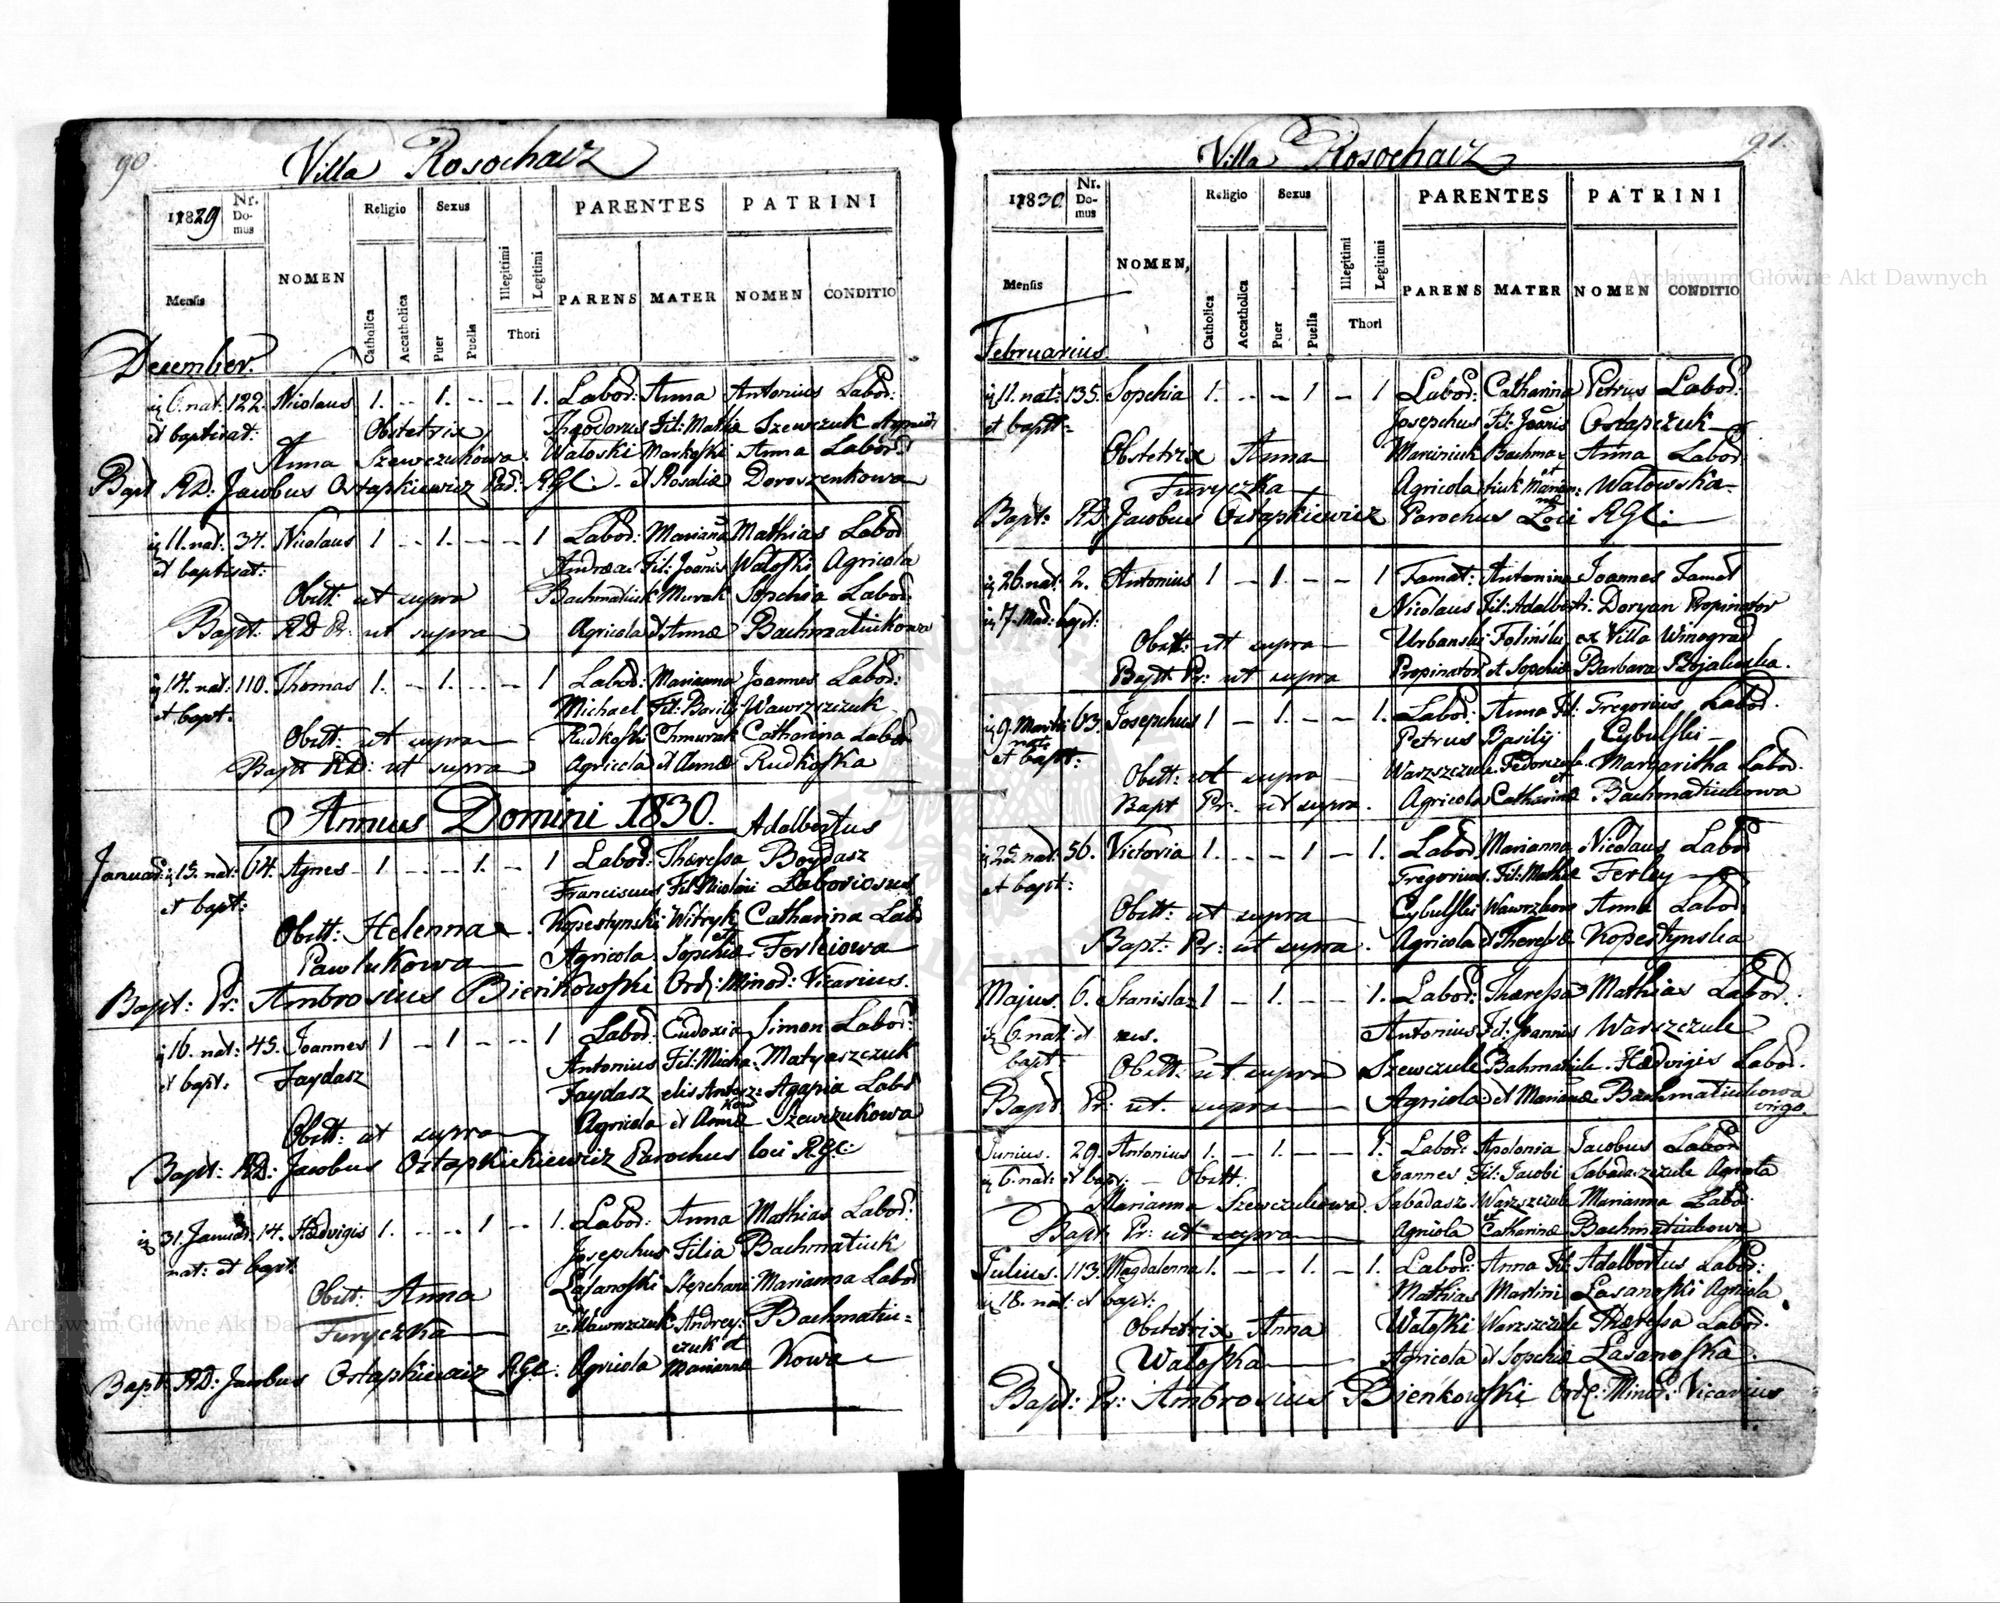 90
Villa Rosochacz
1829 Nr. Domus NOMEN Religio Sexus Illegitimi Legitimi PARENTES PATRINI
Mensis Catholica Accatholica Puer Puella Thori PARENS MATER NOMEN CONDITIO
December.
6. nat: 122. Nicolaus 1. - - 1. - - 1. Labor: Anna Antonius Labor:
et baptisat: Obstetrix Theodorus Fil: Mathiæ Szewczuk
Anna Szewczukowa. Watoski Markoski Anna Labor:
Bapt RD: Jacobus Ostapkiewicz Par: RGL: Rosaliæ Doroszenkowa
11. nat: 34. Nicolaus 1 - - 1. - - 1 Labor: Marianna Mathias Labor
et baptisat: Andreas Fil: Joanis Watoski Agricola
Obstt: ut supra Bachmatiuk Murak Sopchia Labor:
Bapt: RD Pr: ut supra Agricola et Annæ Bachmatiukowa
14. nat: 110. Thomas 1. - 1. - - - 1 Labor: Marianna Joannes Labor:
et bapt. Michael Fil: Basilij Wawrzsczuk
Obstt: ut supra Rudkoski Chmurak Catharina Labor
Bapt RD: ut supra Agricola et Annæ Rudkoska
Annus Domini 1830. Adalbertus
Januar: 15. nat: 64. Agnes - 1 - - - 1. - 1 Labor: Theressa Boydasz
et bapt: Franciscus Fil: Nicolai Laboriosus
Obstt: Helenna Kopestynski Witryk Catharina Labor
Pawlukowa Agricola et Sopchiæ Ferleiowa
Bapt: Pr: Ambrosius Bienkowski Ord: Minor: Vicarius.
16. nat: 45. Joannes 1 - 1 - - - 1 Labor: Eudoxia Simon Labor:
et bapt. Faydasz Antonius Fil: Micha- Matyaszczuk
Faydasz elis Agapia Labor
Obstt: ut supra Agricola et Annæ Szewczukowa
Bapt: RD: Jacobus Ostapkiekiewicz Parochus loci RGL:
31. Januar: 14. Hedvigis 1. - - - 1 - 1. Labor: Anna Mathias Labor:
nat: et bapt. Josepchus Filia Bachmatiuk
Obstt: Anna Lasanoski Stepchani Marianna Labor
Furyczka Wawrzczuk Andrey- Bachmatiu-
czuk et
Bapt RD: Jacobus Ostapkiewicz RGL: Agricola Mariannæ kowa
91.
Villa Rosochacz
1830 Nr. Domus NOMEN, Religio Sexus Illegitimi Legitimi PARENTES PATRINI
Mensis Catholica Accatholica Puer Puella Thori PARENS MATER NOMEN CONDITIO
Februarius
11. nat: 135. Sopchia 1. - - - 1 - 1 Labor: Catharina Petrus Labor:
et bapt: Josepchus Fil: Joanis Ostapczuk
Obstetrix Anna Marciniuk Bachma- Anna Labor
Furyczka Agricola tiuk et Marian- Watowska
Bapt: RD Jacobus Ostapkiewicz Parochus Loci RGL:
26. nat: 2. Antonius 1 - 1. - - 1 Famat: Antonina Joannes Famat
17. Mart: bapt: Nicolaus Fil: Adalberti Doryan Propinator
Obstt: ut supra Urbanski Fotiński ex Villa Winograd
Bapt Pr: ut supra Propinator et Sopchiæ Barbara
9. Martii 63. Josepchus 1 - 1. - - 1. Labor: Anna Fil: Gregorius Labor.
nat: et bapt: Petrus Basilij Cybulski
Obstt: ut supra Warszczuk. Margaritha Labor.
Bapt Pr: ut supra. Agricola et Catharinæ Bachmatiukowa
25. nat: 56. Victoria 1. - - - 1 - 1. Labor Marianna Nicolaus Labor
et bapt: Gregorius. Fil: Mathiæ Ferley
Obstt: ut supra Cybulski Anna Labor
Bapt: Pr: ut supra. Agricola et Theressæ Kopestynska
Majus. 6. Stanisla- 1 - 1. - - 1. Labor: Theressa Mathias Labor.
6. nat: et nus. Antonius Fil: Joannis Warszczuk
bapt Obstt: ut supra Szewczuk Bahmatiuk. Hedvigis Labor.
Bapt Pr: ut. supra Agricola et Mariannæ Bachmatiukowa
virgo.
Junius. 29. Antonius 1. - 1. - - 1. Labor: Apolonia Jacobus Labor
6. nat: et bapt: - Obstt. Joannes Fil: Jacobi
Marianna Szewczukowa. Sabadasz. Warszczuk Marianna Labor.
Bapt. Pr: ut supra Agricola et Catharinæ Bachmatiukowa
Julius. 113. Magdalenna 1. - - 1. - 1. Labor: Anna Fil: Adalbertus Labor:
18. nat: et bapt: Mathias Martini Lasanoski Agricola
Obstetrix Anna Watoski Warszczuk Theressa Labor.
Watoska Agricola et Sopchiæ Lasanoska.
Bapt: Pr: Ambrosius Bienkowski Ord: Minor: Vicarius
Archiwum Główne Akt Dawnych
Archiwum Główne Akt Dawnych